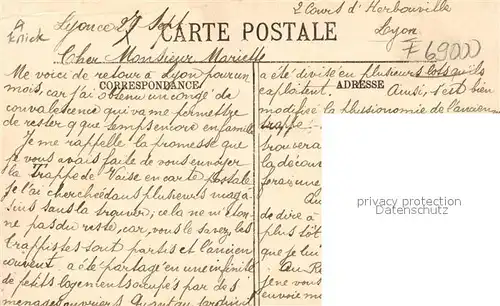 Lyon ce 27 Sept
CARTE POSTALE
2 Cours d'Herbouville
Lyon
F69000
Cher Monsieur Mariette
Me voici de retour à Lyon pour un
mois, car j'ai obtenu un congé de
CORRESPONDANCE
convalescence qui va me permettre
de rester quelque temps encore en famille
Je me rappelle la promesse que
je vous avais faite de vous envoyer
la Trappe de Vaise en carte postale
je l'ai cherchée dans plusieurs maga-
sins sans la trouver, cela ne m'éton-
ne pas du reste, car, vous le savez, les
trappistes sont partis et l'ancien
couvent a été partagé en une infinité
de petits logements occupés par des
ménages ouvriers. Quant au
a été divisé en plusieurs lots qu'ils
exploitent. Aussi, s'est bien
ADRESSE
modifié la physionomie de l'ancienne
trappe
trouvera
la découv
fera une
de dire à
plus tôt
que je lui
je ne vous
envoie
privacy protection
Datenschutz